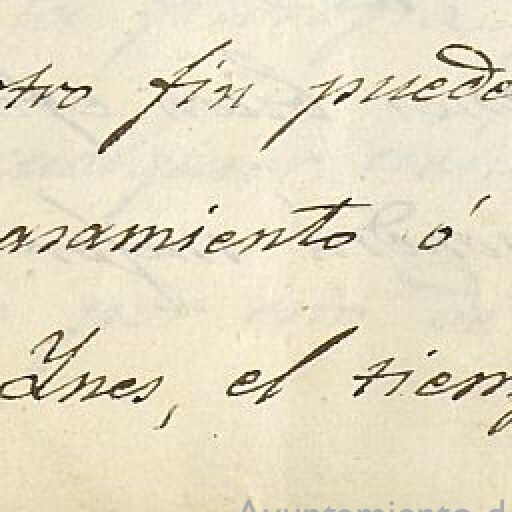 otro fin puede
asamiento ó
Ynes, el tiemp
Ayuntamiento de